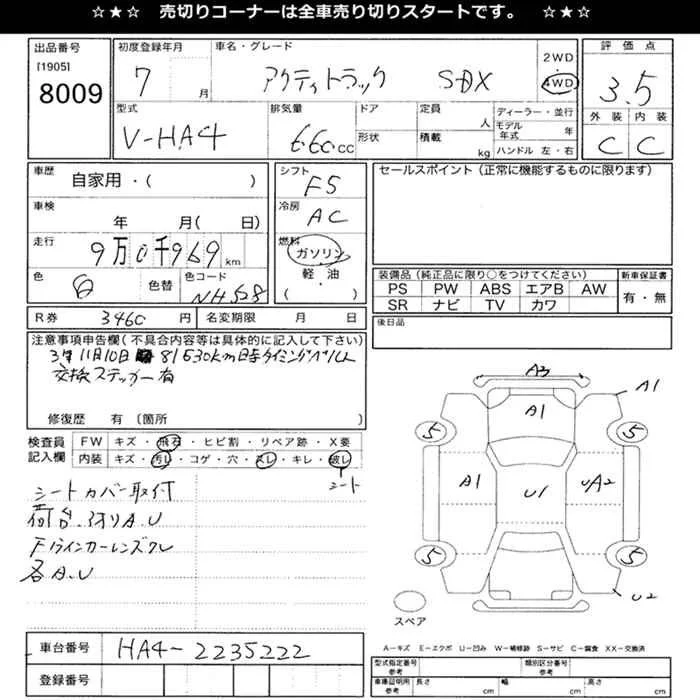 ☆★☆ 売切りコーナーは全車売り切りスタートです。 ☆★☆
出品番号
[1905]
8009
初度登録年月
7 月
車名・グレード
アクティトラック SDX
2WD
4WD
評価点
3.5
外装 内装
C C
型式
V-HA4
排気量
660 CC
ドア
形状
定員
人
積載
kg
ディーラー・並行
モデル年式 年
ハンドル 左・右
車歴
自家用・( )
車検
年 月( 日)
走行
9万0千969 km
色
白
色替
色コード
NH528
シフト
F5
冷房
AC
燃料
ガソリン
軽・油
( )
セールスポイント(正常に機能するものに限ります)
装備品(純正品に限り○をつけてください)
PS PW ABS エアB AW
SR ナビ TV カワ
新車保証書
有・無
後日品
R券 3460円
名変期限 月 日
注意事項申告欄(不具合内容等は具体的に記入して下さい)
11月10日 81530km時タイミングベルト
交換ステッカー有
修復歴 有 〔箇所
検査員
記入欄
FW キズ・飛石・ヒビ割・リペア跡・X要
内装 キズ・汚レ・コゲ・穴・スレ・キレ・破レ
シート
シートカバー取付
荷台、アオリA.U
Fウインカーレンズワレ
各A.U
A3
A1
A1
5
5
A1
U1
UA2
5
5
U2
スペア
車台番号
HA4-2235222
登録番号
A-キズ E-エクボ U-凹み W-補修跡 S-サビ C-腐食 XX-交換済
型式指定番号
参考
類別区分番号
参考
車庫証明用
参考
長さ cm
幅 cm
高さ cm